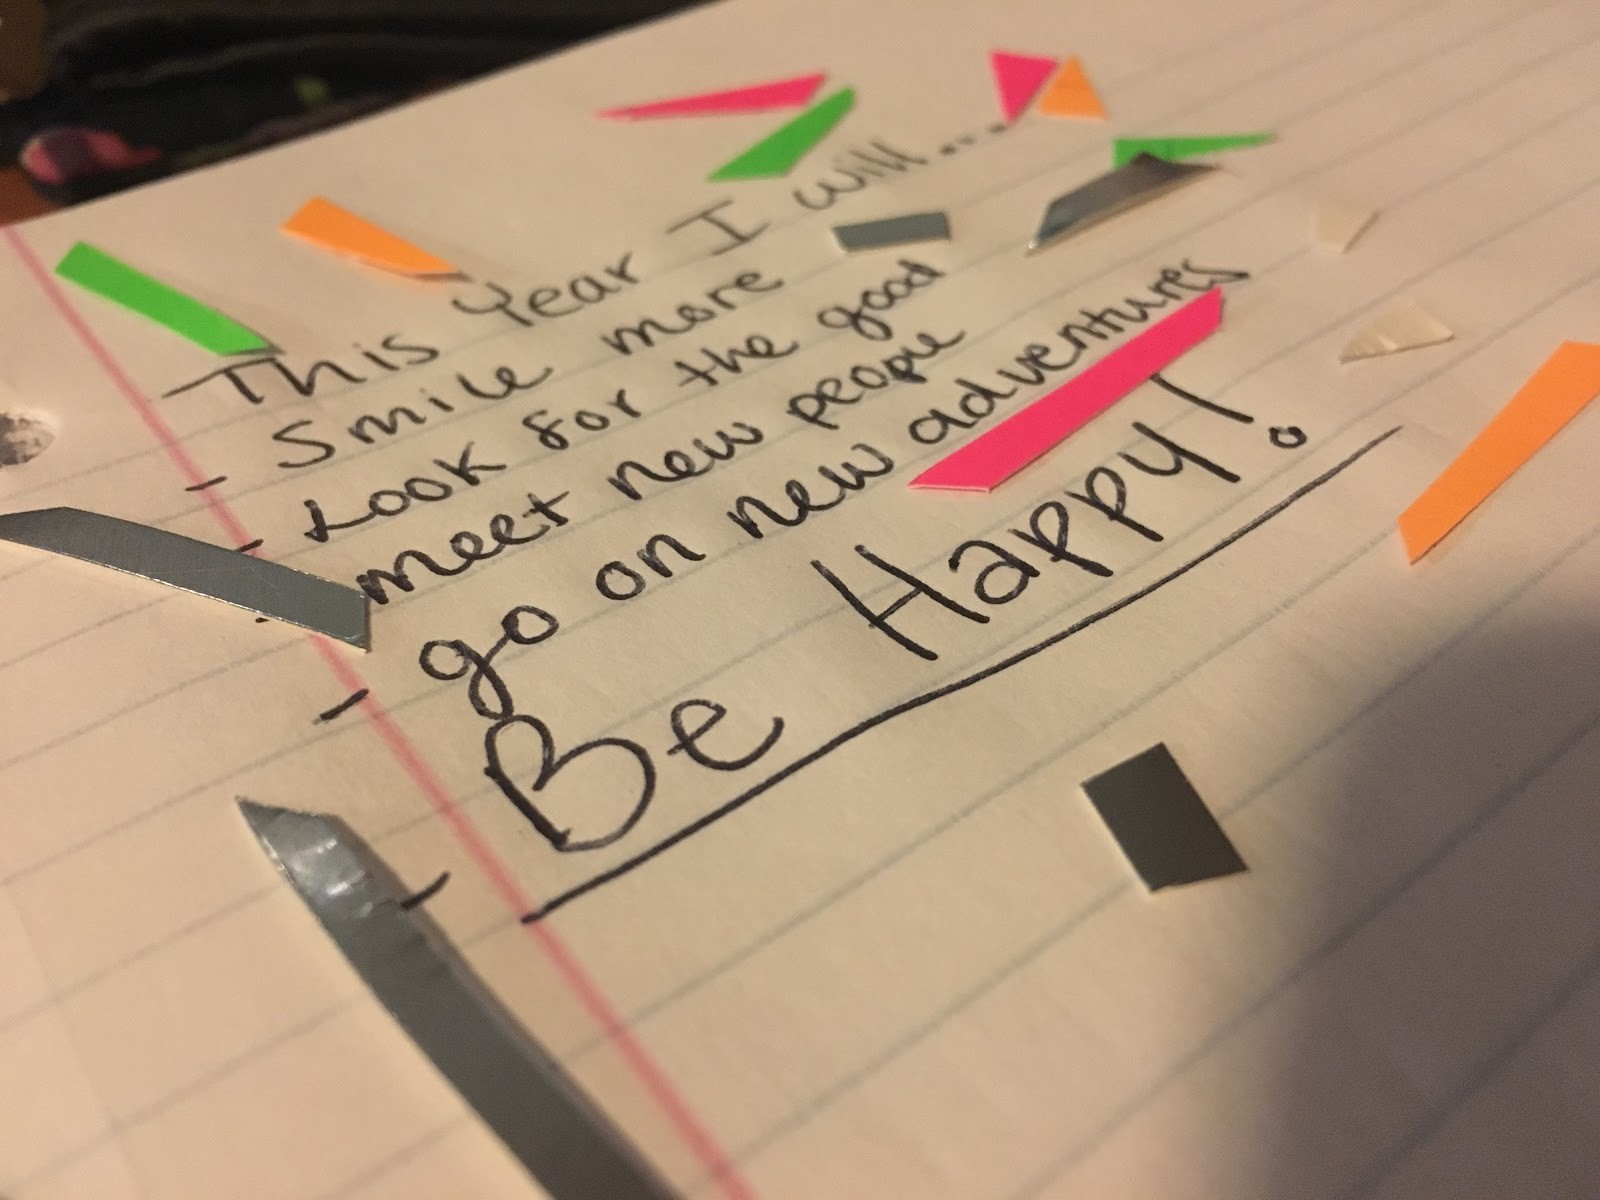 This Year I will....
- Smile more
- Look for the good
- meet new people
- go on new adventures
- Be Happy!